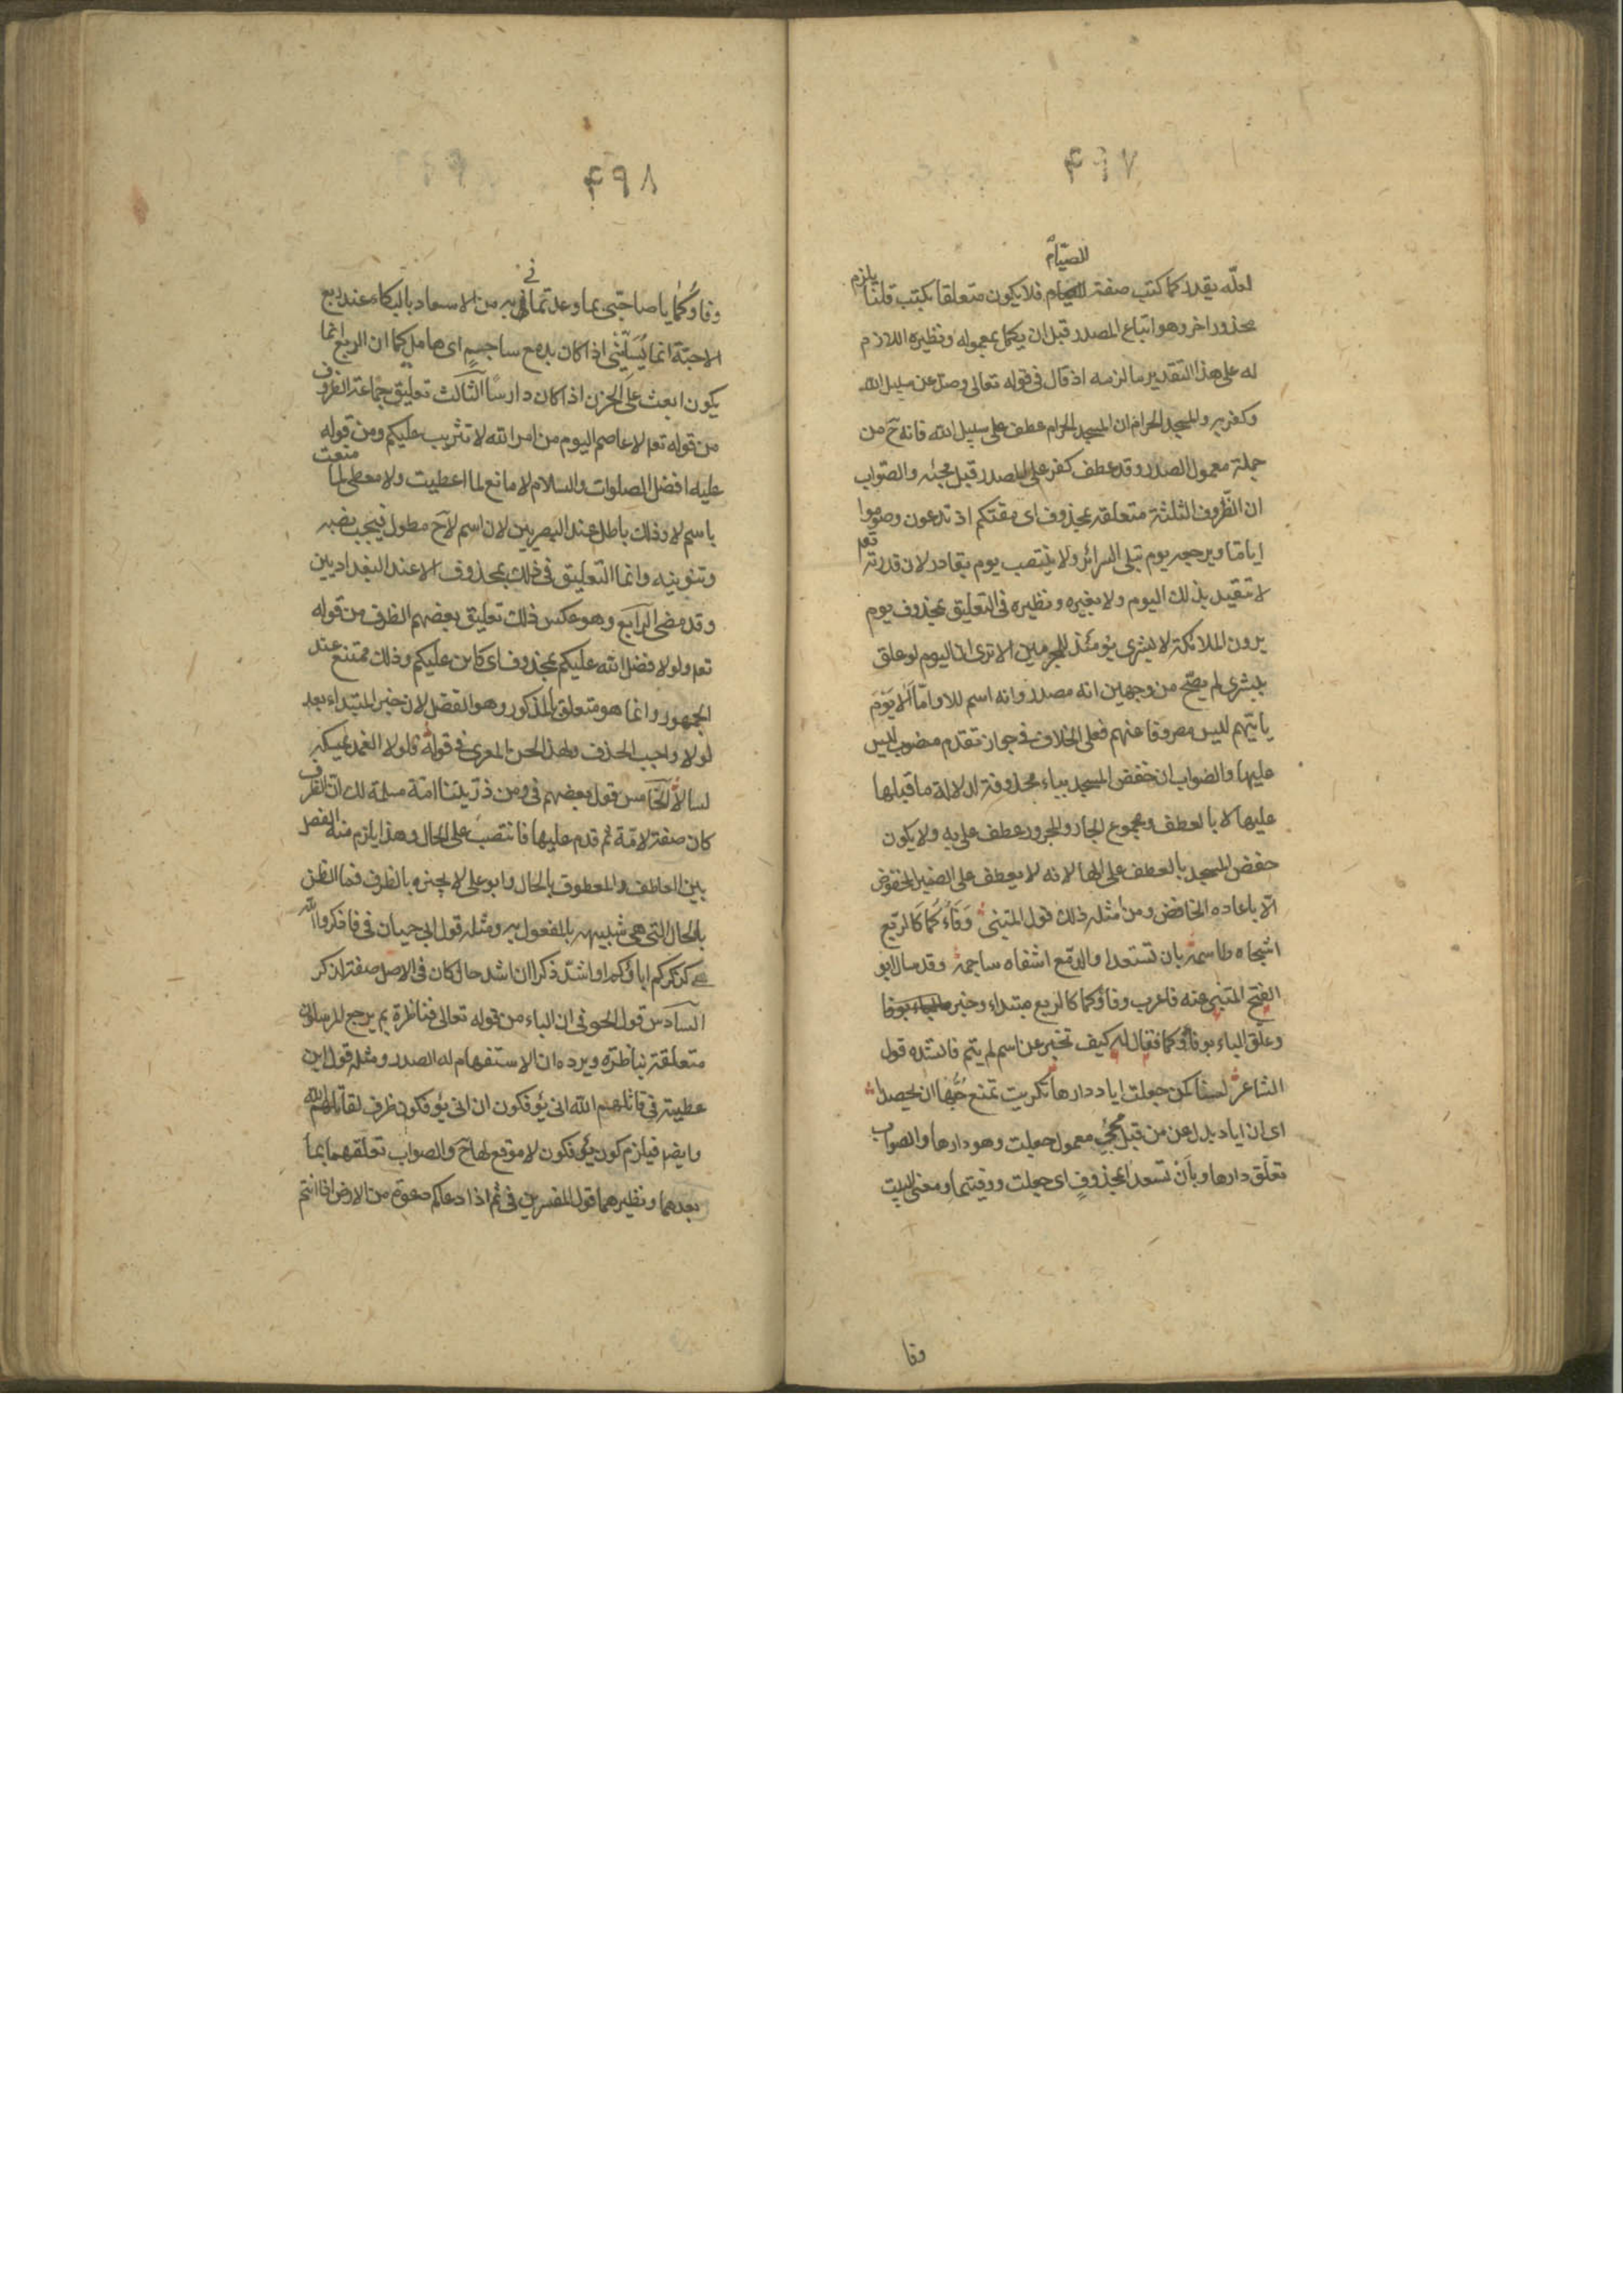 ۴۹۷
للصيام
لعله يقدر كما كتب صفة للصيام فلا يكون متعلقا بكتب قلنا يلزم
محذور اخر وهو اتباع المصدر قبل ان يكمل بمعموله ونظيره اللازم
له على هذا التقدير ما لزمه اذ قال فى قوله تعالى وصد عن سبيل الله
وكفر به والمسجد الحرام ان المسجد الحرام عطف على سبيل الله فانه ح من
جملة معمول الصدر وقد عطف كفر على المصدر قبل مجيئه والصواب
ان الظروف الثلثة متعلقة بمحذوف اى مقتكم اذ تدعون وصوموا
اياما ويرجعه يوم تبلى السرائر ولا ينتصب يوم بقادر لان قدرته تعم
لا تتقيد بذلك اليوم ولا بغيره ونظيره فى التعليق بمحذوف يوم
يرون الملائكة لا بشرى يومئذ للمجرمين الا ترى ان اليوم لو علق
ببشرى لم يصح من وجهين انه مصدر وانه اسم للا واما الا يوم
ياتيهم ليس مصروفا عنهم فعلى الخلاف فى جواز تقدم منصوب ليس
عليها والصواب ان خفض المسجد بباء محذوفة لدلالة ما قبلها
عليها لا بالعطف ومجموع الجار والمجرور عطف على به ولا يكون
خفض المسجد بالعطف على الها لانه لا يعطف على الضمير المخفوض
الا باعاده الخافض ومن امثلة ذلك قول المتنبى وَفَاؤُكُما كَالربع
اشجاه طاسمه بان تسعدا والدمع اشفاه ساجمه وقد سال ابو
الفتح المتنبى عنه فاعرب وفاؤكما كالربع مبتداء وخبر بوفا
وعلق الباء بوفاؤكما فقال له كيف تخبر عن اسم لم يتم فانشده قول
الشاعر لسنا كمن جعلت اياد دارها تكريت تمنع حبها ان يحصدا
اى ان اياد بدل من من قبل مجئ معمول جعلت وهو دارها والصواب
تعلق دارها وبان تسعدا بمحذوف اى جعلت ووفيتما ومعنى البيت
وفا
۴۹۸
فى
وفاؤكما يا صاحبى بما وعدتمانى به من الاسعاد بالبكاء عند ربع
الاحبة انما يُسَلِّينى اذا كان بدمع ساجم اى هامل كما ان الربع انما
يكون ابعث على الحزن اذا كان دارسا الثالث تعليق جماعة الظروف
من قوله تعم لا عاصم اليوم من امر الله لا تثريب عليكم ومن قوله
عليه افضل الصلوات والسلام لا مانع لما اعطيت ولا معطى لما منعت
باسم لا وذلك باطل عند البصريين لان اسم لا ح مطول فيجب نصبه
وتنوينه وانما التعليق فى ذلك بمحذوف الا عند البغداديين
وقد مضى الرابع وهو عكس ذلك تعليق بعضهم الظرف من قوله
تعم ولولا فضل الله عليكم بمحذوف اى كاين عليكم وذلك ممتنع عند
الجمهور وانما هو متعلق بالمذكور وهو الفضل لان خبر المبتداء بعد
لولا واجب الحذف ولهذا لحن المعرى فى قوله فلولا الغمد يمسكه
لسالا الخامس قول بعضهم فى ومن ذريتنا امة مسلمة لك ان الظرف
كان صفة لامة ثم قدم عليها فانتصب على الحال وهذا يلزم منه الفصل
بين العاطف والمعطوف بالحال وابو على لا يجيزه بالظرف فما الظن
بالحال التى هى شبيهة بالمفعول به ومثله قول ابى حيان فى فاذكروا الله
كذكركم اباؤكم او اشد ذكرا ان اشد حال كان فى الاصل صفة لذكر
السادس قول الحوفى ان الباء من قوله تعالى فناظرة بم يرجع المرسلون
متعلقة بناظرة ويرده ان الاستفهام له الصدر ومثله قول ابن
عطية فى قاتلهم الله انى يؤفكون ان انى يؤفكون ظرف لقاتلهم الله
وايضا فيلزم كون يؤفكون لا موقع لها ح والصواب تعلقهما بما
بعدهما ونظيرهما قول المفسرين فى ثم اذا دعاكم دعوة من الارض اذا انتم